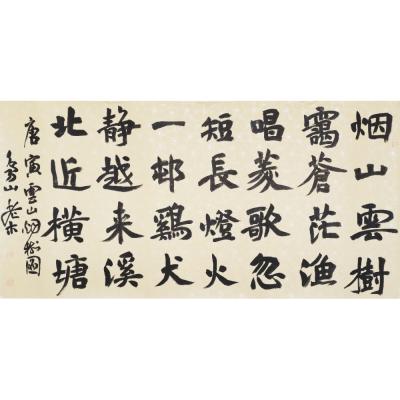 烟山雲樹
靄蒼茫漁
唱菱歌忽
短長燈火
一邨鷄犬
静越来溪
北近橫塘
唐寅雲山烟樹圖
山老